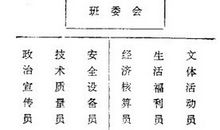 班委会
政治宣传员
技术质量员
安全设备员
经济核算员
生活福利员
文体活动员